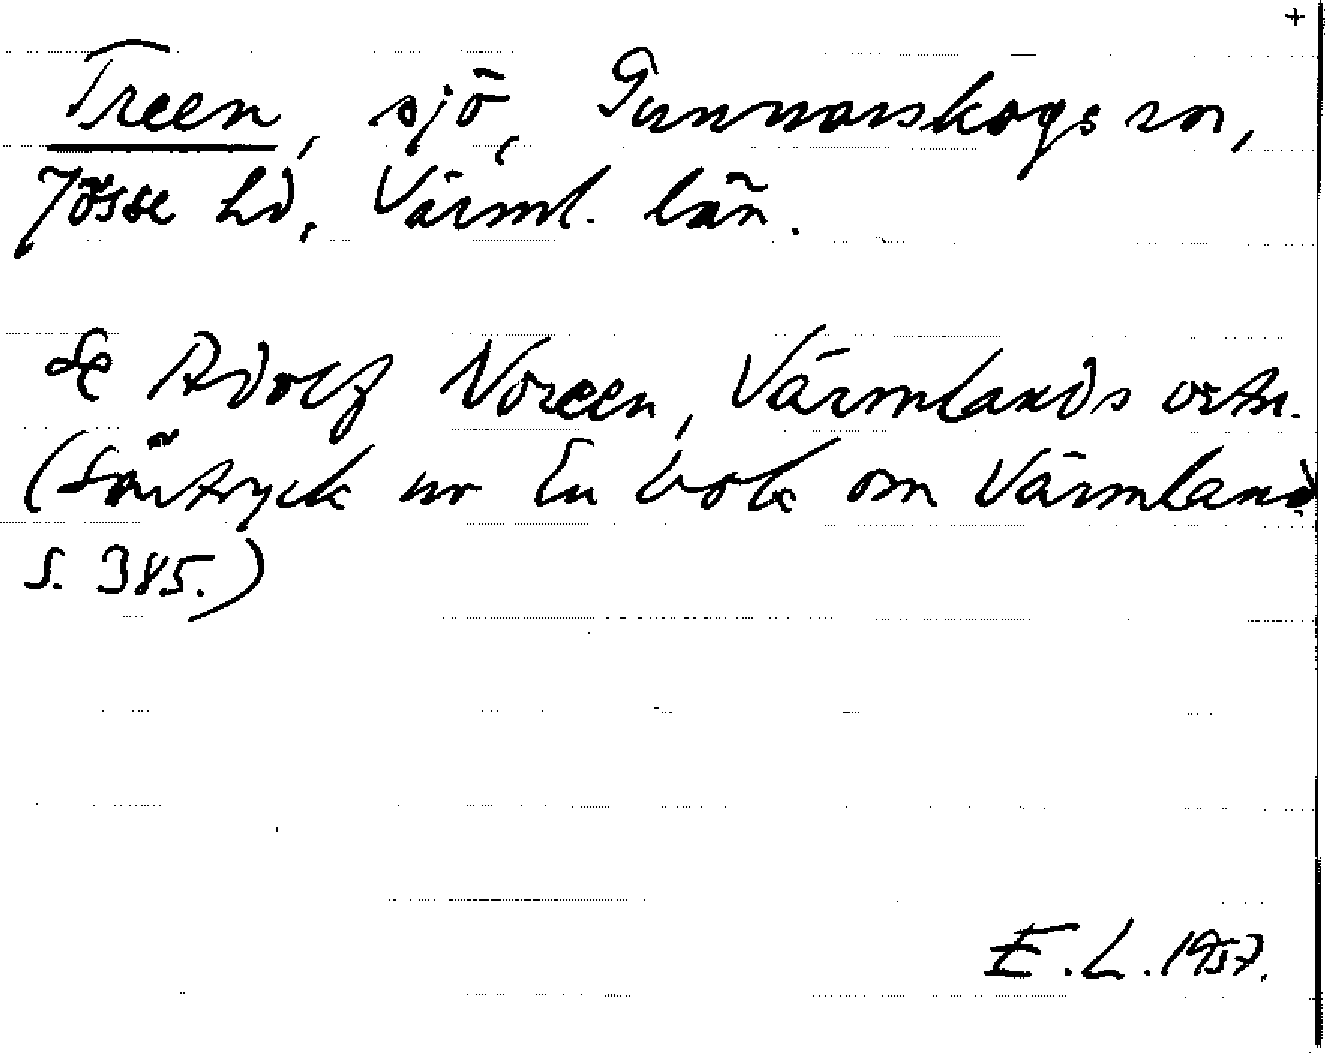 +
Treen, sjö, Gunnarskogs sn,
Jösse hd, Värml. län.
Se Adolf Noreen, Värmlands ortn.
(Särtryck ur En bok om Värmland
s. 385.)
E.L. 1957.